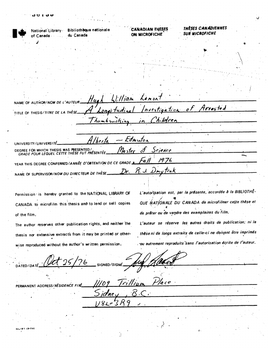 National Library of Canada
Bibliothèque nationale du Canada
CANADIAN THESES ON MICROFICHE
THÈSES CANADIENNES SUR MICROFICHE
NAME OF AUTHOR/NOM DE L'AUTEUR Hugh William Lamont
TITLE OF THESIS/TITRE DE LA THÈSE A Longitudinal Investigation of Arrested
Thumbsucking in Children
UNIVERSITY/UNIVERSITÉ Alberta - Edmonton
DEGREE FOR WHICH THESIS WAS PRESENTED/
GRADE POUR LEQUEL CETTE THÈSE FUT PRÉSENTÉE Master of Science
YEAR THIS DEGREE CONFERRED/ANNÉE D'OBTENTION DE CE GRADE Fall 1976
NAME OF SUPERVISOR/NOM DU DIRECTEUR DE THÈSE Dr.
Permission is hereby granted to the NATIONAL LIBRARY OF
CANADA to microfilm this thesis and to lend or sell copies
of the film.
The author reserves other publication rights, and neither the
thesis nor extensive extracts from it may be printed or other-
wise reproduced without the author's written permission.
L'autorisation est, par la présente, accordée à la BIBLIOTHÈ-
QUE NATIONALE DU CANADA de microfilmer cette thèse et
de prêter ou de vendre des exemplaires du film.
L'auteur se réserve les autres droits de publication, ni la
thèse ni de longs extraits de celle-ci ne doivent être imprimés
ou autrement reproduits sans l'autorisation écrite de l'auteur.
DATED/DATÉ Oct 25/76 SIGNED/SIGNÉ
PERMANENT ADDRESS/RÉSIDENCE FIXE 11109 Trillium Place
Sidney, B.C.
V8L-3R9